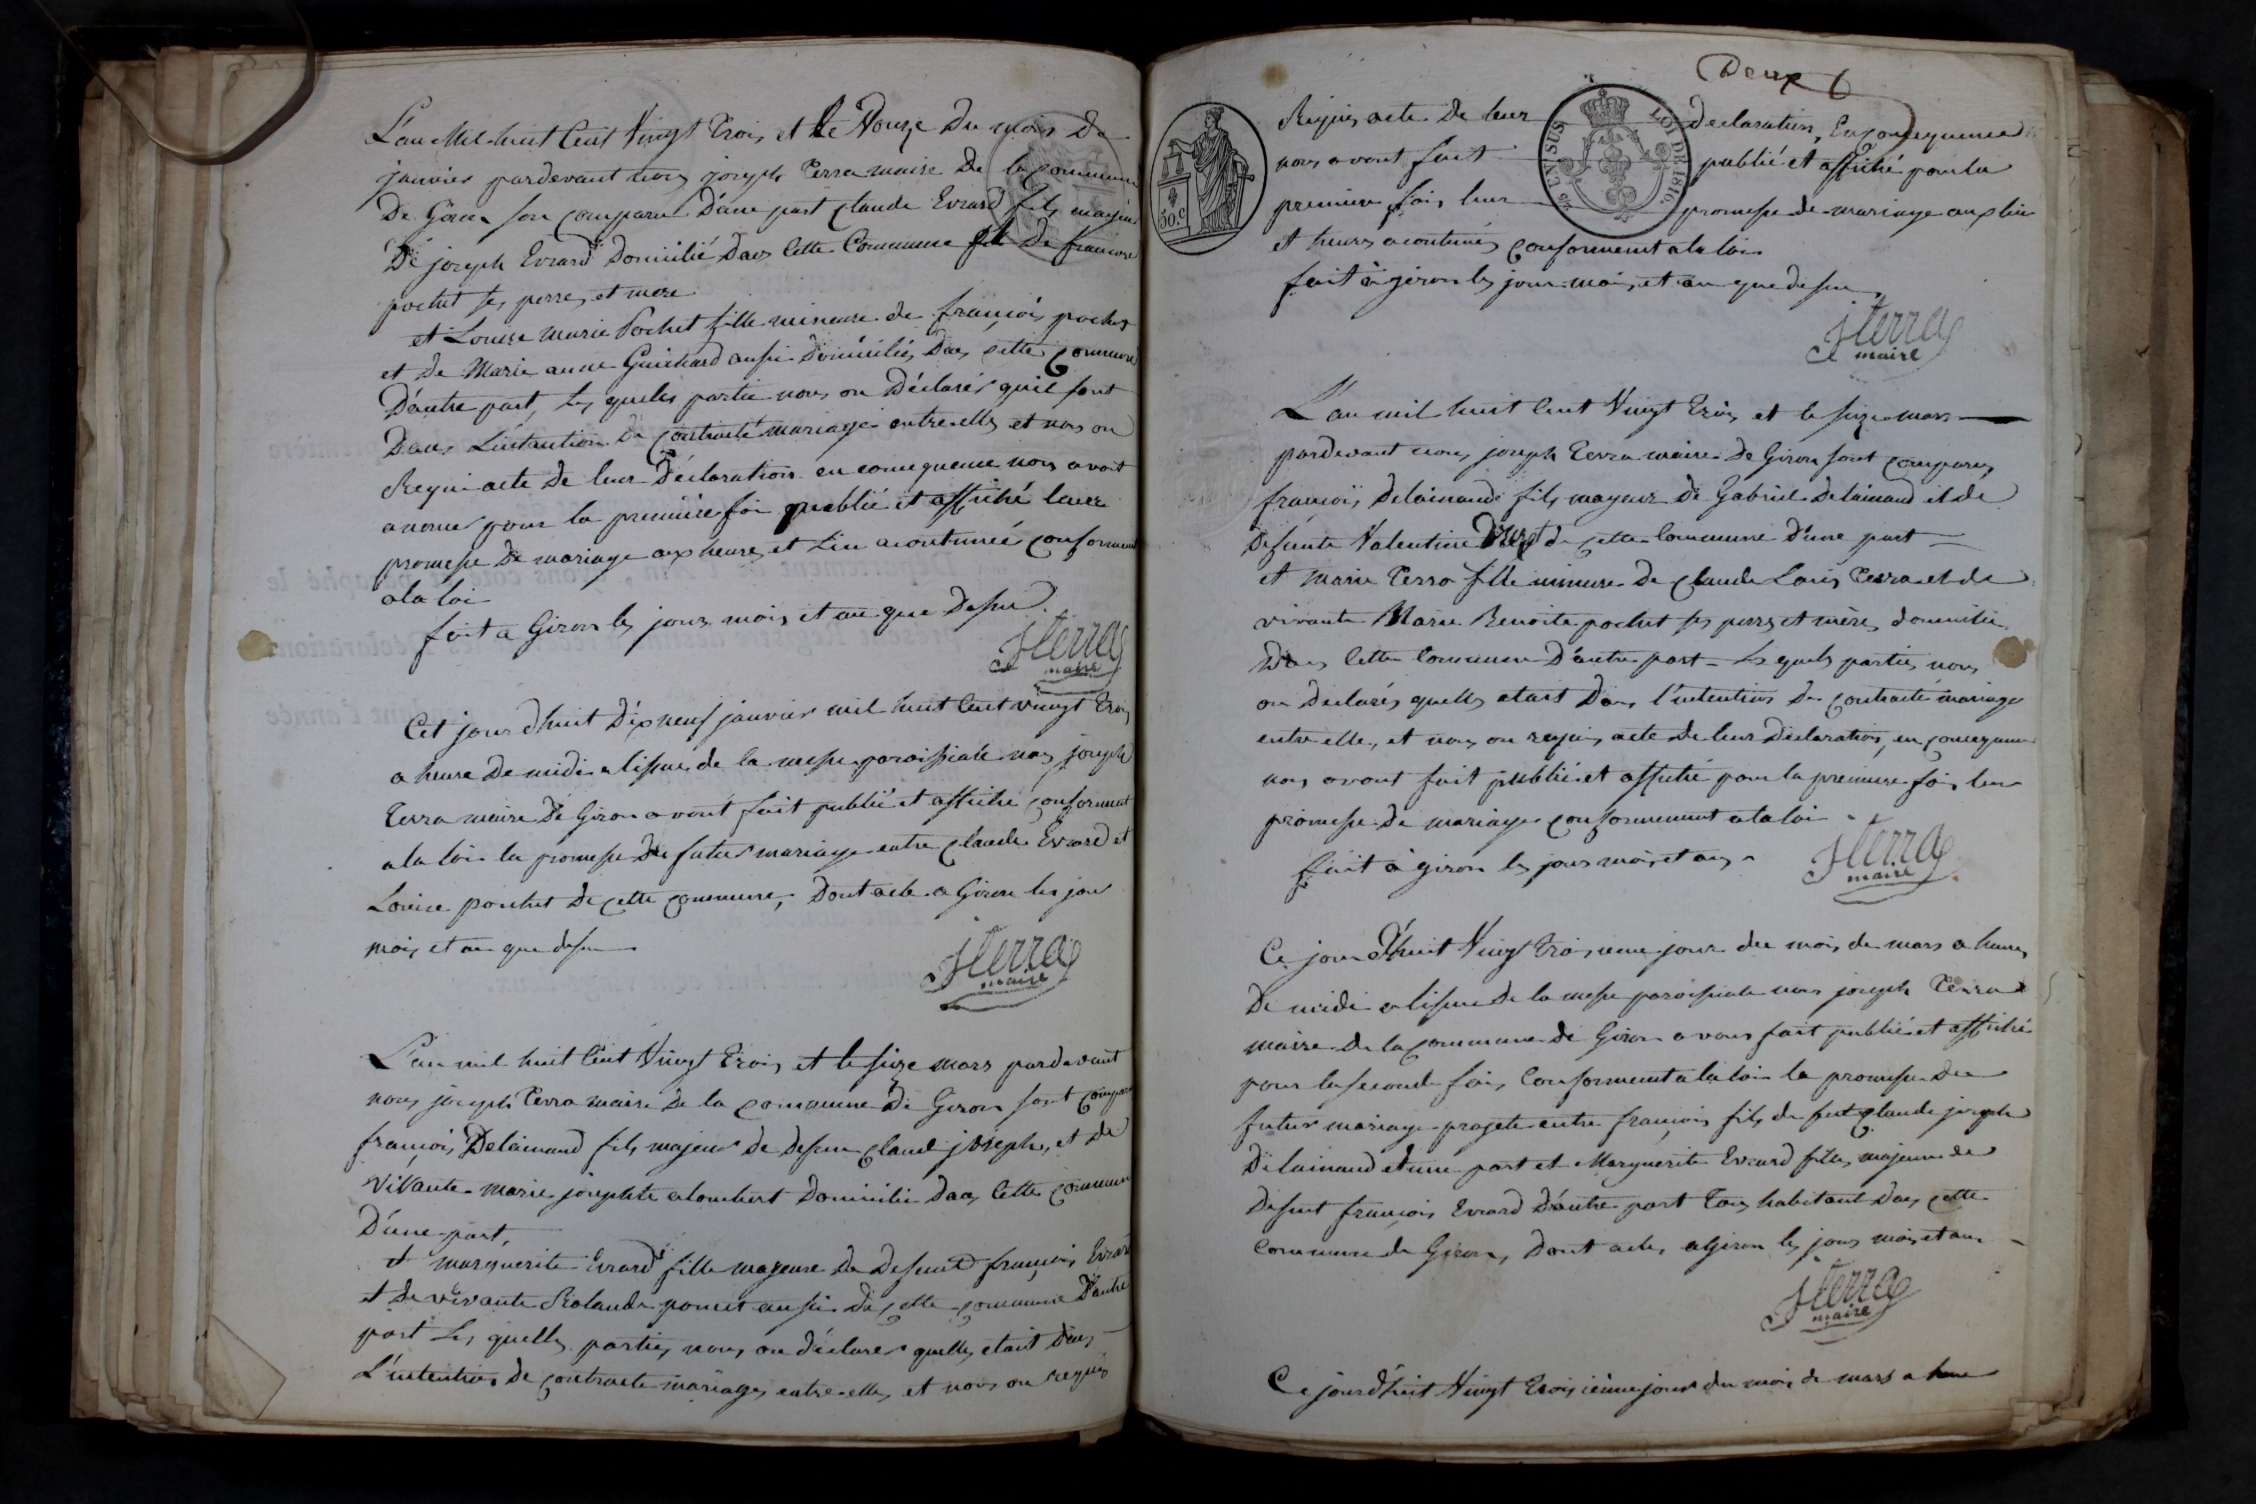 L'an Mil huit Cent Vingt Trois et Le Douze Du mois De
janvier pardevant nous joseph Terra maire De la commune
De Giron son comparu D'une part claude Evrard fils majeur
De joseph Evrard Domicilié Dans Cette Commune et De francoise
pochet ses perres et mere
et Louise marie Pochet fille mineure de françois pochet
et De Marie anne Guichard aussi Domicilies Dans cette commune
D'autre part, Les quelles partie nous on Déclarés quil sont
Dans L'intantion De contracté mariage entre elles et nous on
Requi acte De leur Déclaration en consequence nous avont
anonce pour la première foi publié et affiché leurs
promesse De mariage aux heures et Lieu acoutumée conforment
a la loi
fait a Giron les jours mois et an que Dessus
JTerra
maire
Cet jour d'huit Dix neuf janvier mil huit Cent vingt Trois
a heure De midi a lissue de la messe paroissiale nous joseph
Terra maire De Giron avont fait publié et affiché conforment
a la loi la promesse De futur mariage entre claude Evrard et
Louise pochet De cette commune, Dont acte a Giron les jour
mois et an que dessus
JTerra
maire
L'an mil huit Cent Vingt Trois et le seize mars pardevant
nous joseph Terra maire De la commune De Giron sont comparu
françois Delainaud fils majeur de Defun claude joseph, et De
Vivante marie josephte alombert Domicilié Dans Cette commune
D'une part,
et marguerite Evrard fille majeure De Defunt françois Evrard
et De vivante Rolande poncet aussi De cette commune D'autre
part Les quelles parties nous on déclarés quelles etait Dans
L'intention de contracté mariages entre elles et nous on requis
Deux
Requis acte De leur declaration, En consequence
nous avont fait publié et affiché pour la
premiere fois leur promesse de mariage aux lieu
et heures acoutumés conforment a la loi
fait à giron les jour mois et an que dessus
JTerra
maire
30.C
25 EN SUS. LOI DE 1816.
L'an mil huit Cent Vingt Trois et le seize mars
pardevant nous joseph Terra maire De Giron sont comparus
françois Delainaud fils majeur De Gabriel Delainaud et de
Defunte Valentine de cette Commune D'une part
et marie Terra fille mineure De claude Louis Terra et de
vivante Marie Benoite pochet ses perres et mère, domicilié
Dans Cette Commune D'autre part Les quels parties nous
on declarés quelles etait Dans l'intention De contracté mariage
entre elle, et nous on requis acte de leur déclaration, en consequence
nous avont fait publié et affiché pour la premiere fois leur
promesse De mariage conformement a la loi
fait à giron les jours mois et an
JTerra
maire
Ce jour D'huit Vingt Troisieme jour du mois de mars a heure
De midi a lissue De la messe paroissiale nous joseph Terra
maire de la commune de Giron avons fait publié et affiché
pour la seconde fois, Conforment a la loi la promesse De
futur mariage projeté entre françois fils de feut Claude joseph
Delainaud d'une part et Marguerite Evrard fille majeure de
Defunt françois Evrard D'autre part Tous habitant Dans cette
commune de Giron, Dont acte, a giron les jours mois et an
JTerra
maire
Ce jour d'huit Vingt Troisième jour du mois de mars a heure